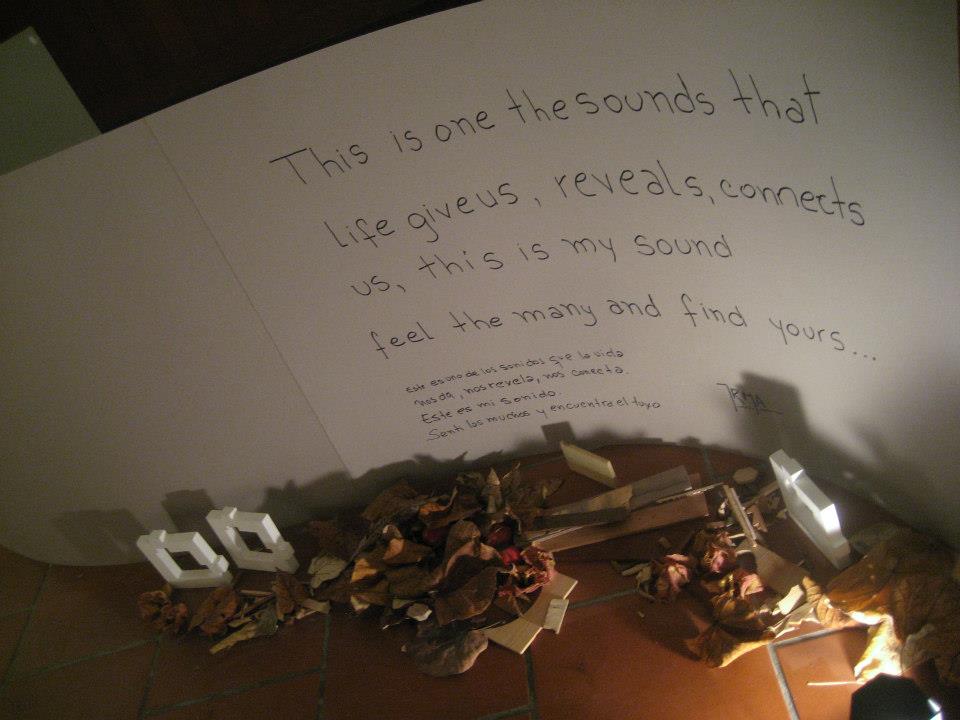 This is one the sounds that
life give us, reveals, connects
us, this is my sound
feel the many and find yours...
Este es uno de los sonidos que la vida
nos da, nos revela, nos conecta.
Este es mi sonido.
Sentí los muchos y encuentra el tuyo
IRMA